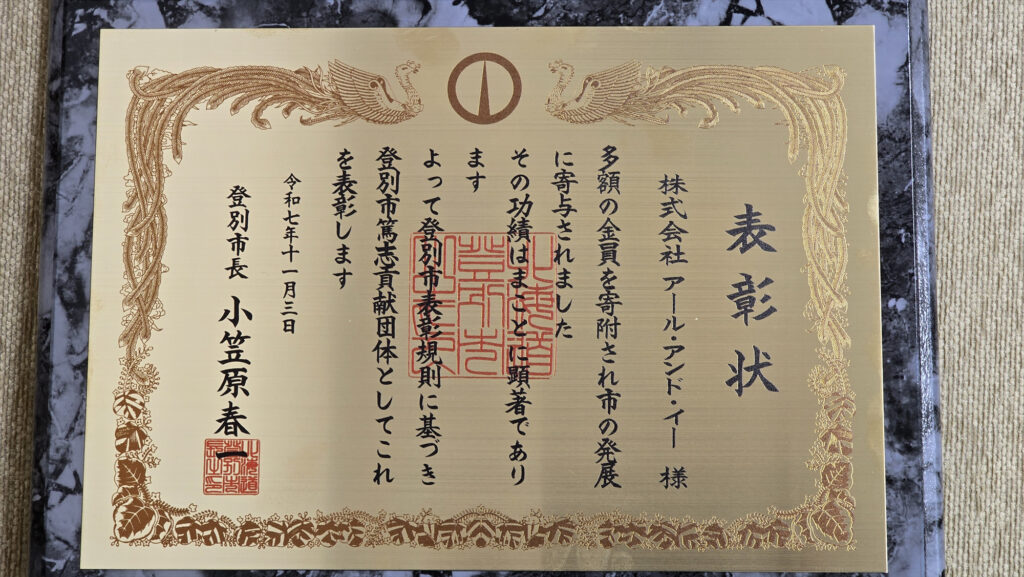 表彰状
株式会社 アール・アンド・イー 様
多額の金員を寄附され市の発展
に寄与されました
その功績はまことに顕著であり
ます
よって登別市表彰規則に基づき
登別市篤志貢献団体としてこれ
を表彰します
令和七年十一月三日
登別市長 小笠原春一